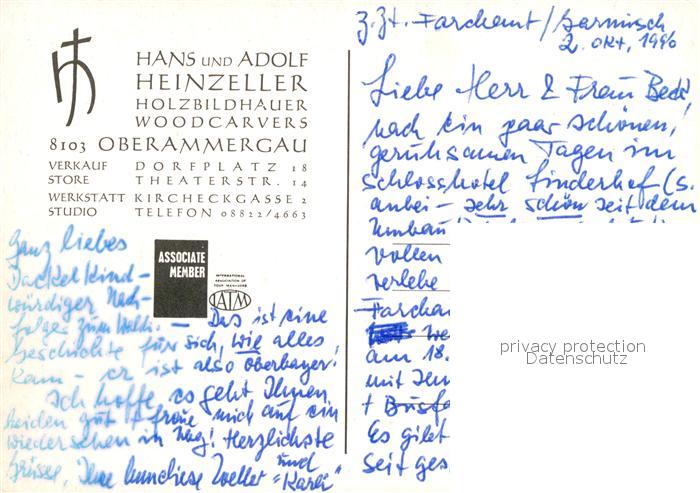 HANS UND ADOLF
HEINZELLER
HOLZBILDHAUER
WOODCARVERS
8103 OBERAMMERGAU
VERKAUF DORFPLATZ 18
STORE THEATERSTR. 14
WERKSTATT KIRCHECKGASSE 2
STUDIO TELEFON 08822/4663
ASSOCIATE
MEMBER
INTERNATIONAL
ASSOCIATION OF
TOUR MANAGERS
IATM
z.Zt. Farchant/Garmisch
2. Okt. 1996
Liebe Herr & Frau
nach ein paar schönen,
geruhsamen Tagen im
Schlosshotel Linderhof (s.
anbei – sehr schön seit dem
Umbau
vollen
verlebe
Farcha
am 18.
mit Ihn
+
Es gibt
seit ges
privacy protection
Datenschutz
Ganz liebes
Dackelkind –
würdiger Nach-
folger zum Waldi. – Das ist eine
Geschichte für sich, wie alles
kam – er ist also Oberbayer.
Ich hoffe, es geht Ihnen
beiden gut + freue mich auf ein
Wiedersehen in! Herzlichste
Grüsse, Ihre Zoller und